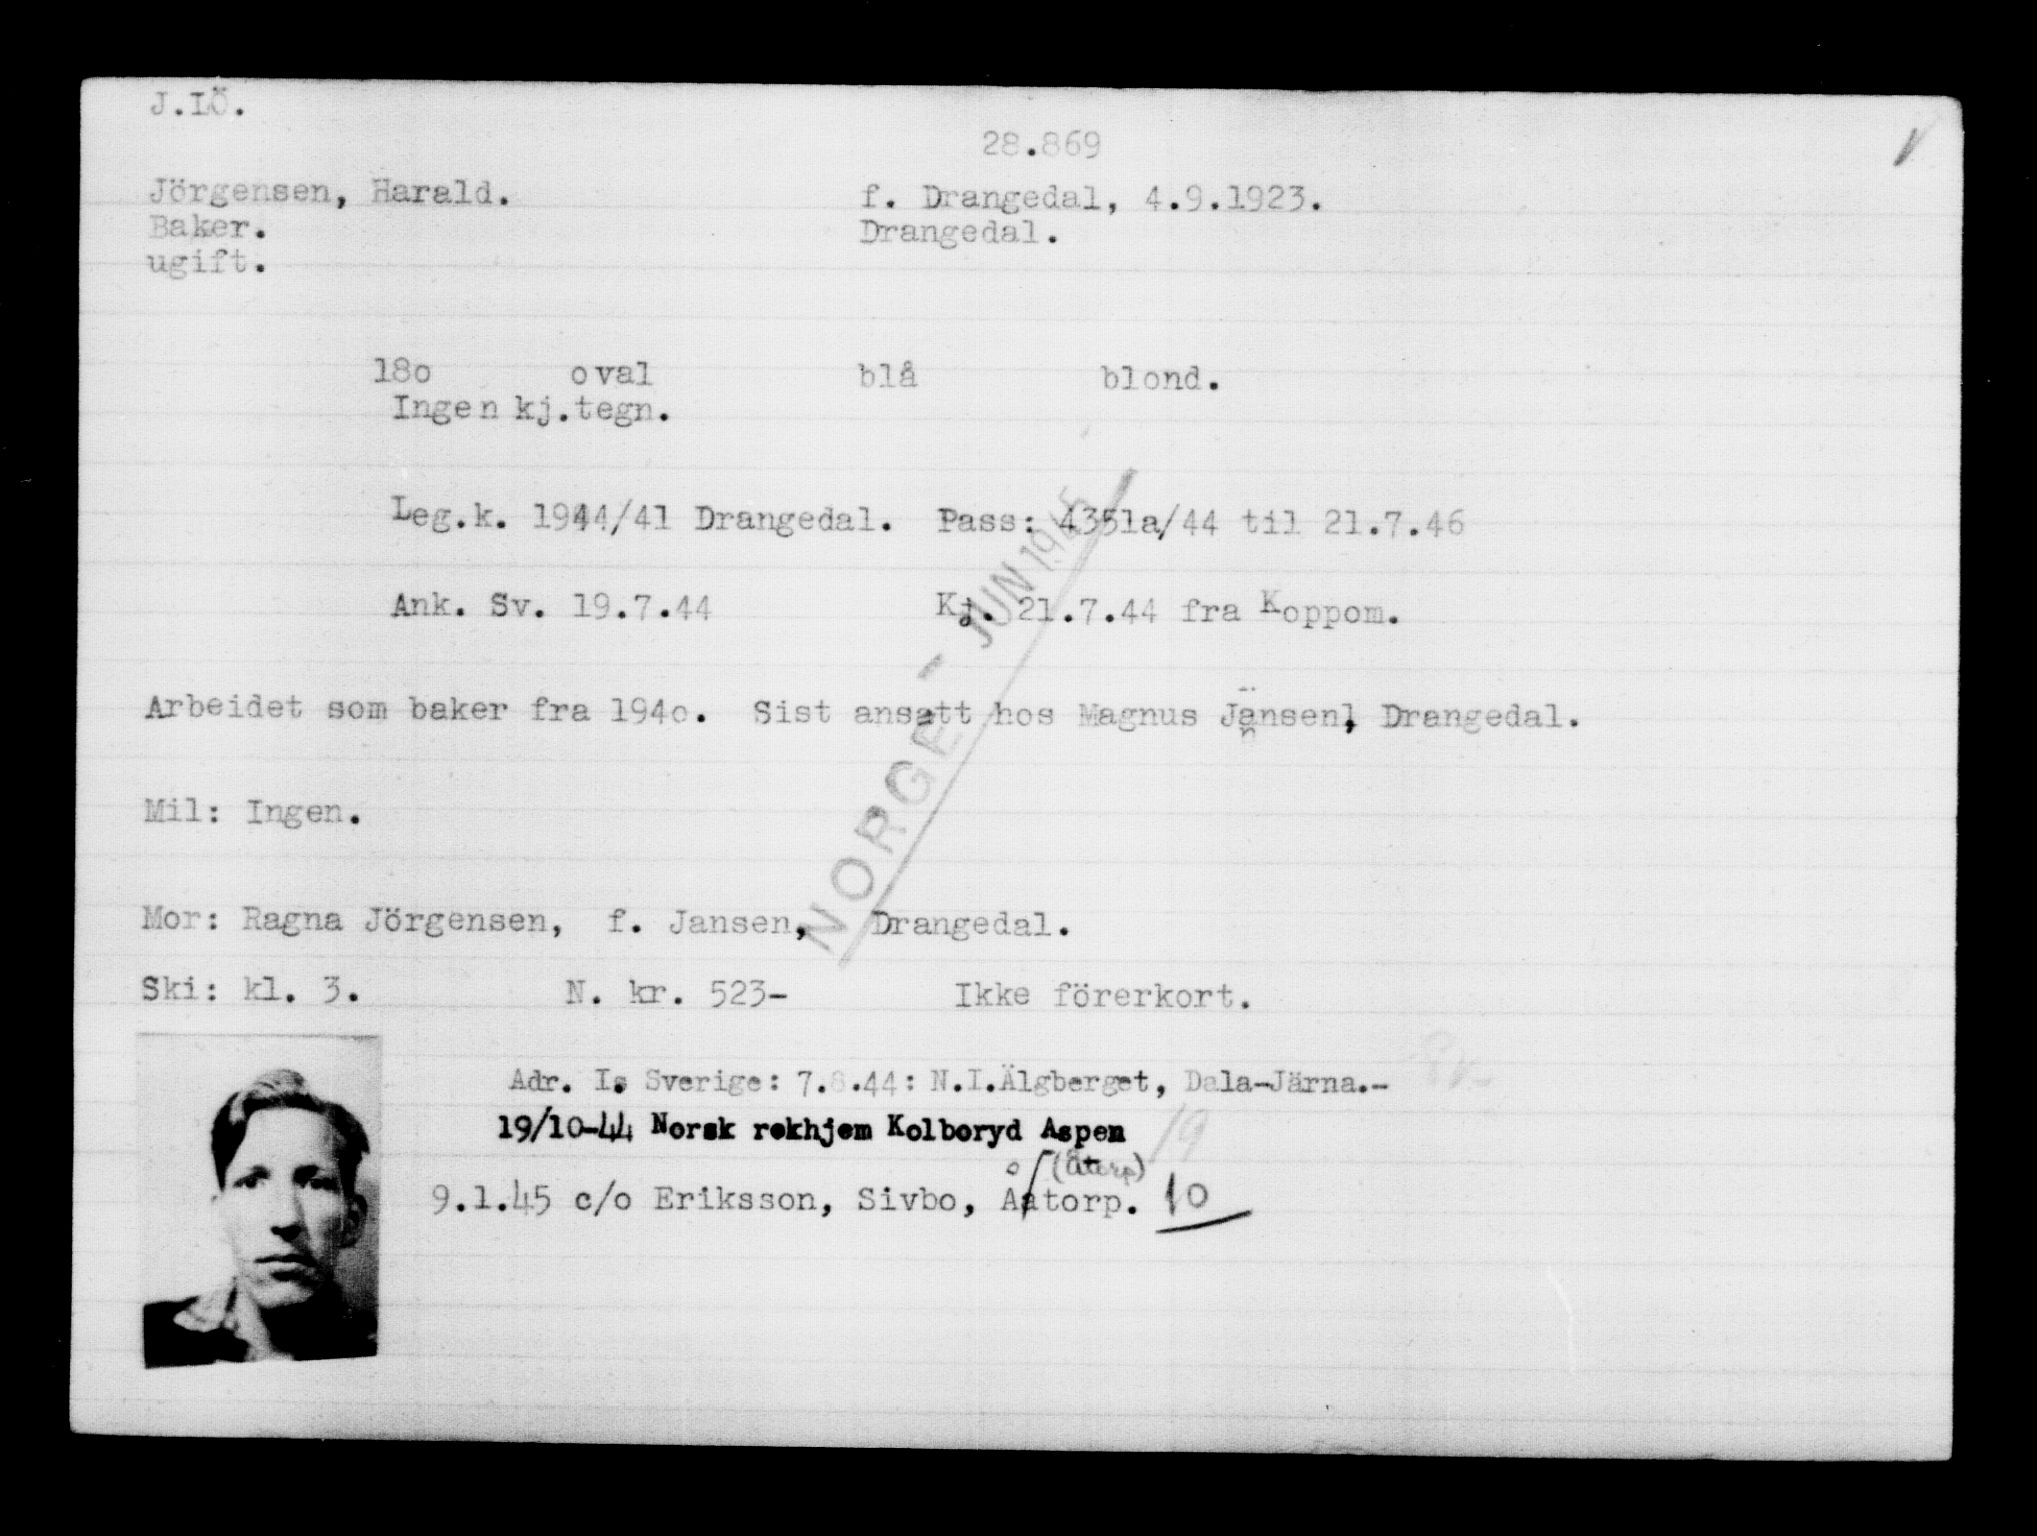 J.LÖ.
28.869
Jörgensen, Harald. f. Drangedal, 4.9.1923.
Baker. Drangedal.
ugift.
18o oval blå blond.
Ingen kj.tegn.
Leg.k. 1944/41 Drangedal. Pass: 4351a/44 til 21.7.46
Ank. Sv. 19.7.44 Kj. 21.7.44 fra Koppom.
NORGE - JUN 1945
Arbeidet som baker fra 194o. Sist ansatt hos Magnus Jansen, Drangedal.
Mil: Ingen.
Mor: Ragna Jörgensen, f. Jansen, Drangedal.
Ski: kl. 3. N. kr. 523- Ikke förerkort.
Adr. I. Sverige: 7.8.44: N.I.Älgberget, Dala-Järna.-
19/10-44 Norsk rekhjem Kolboryd Aspen 19
(Åtorp)
9.1.45 c/o Eriksson, Sivbo, Åatorp. 10